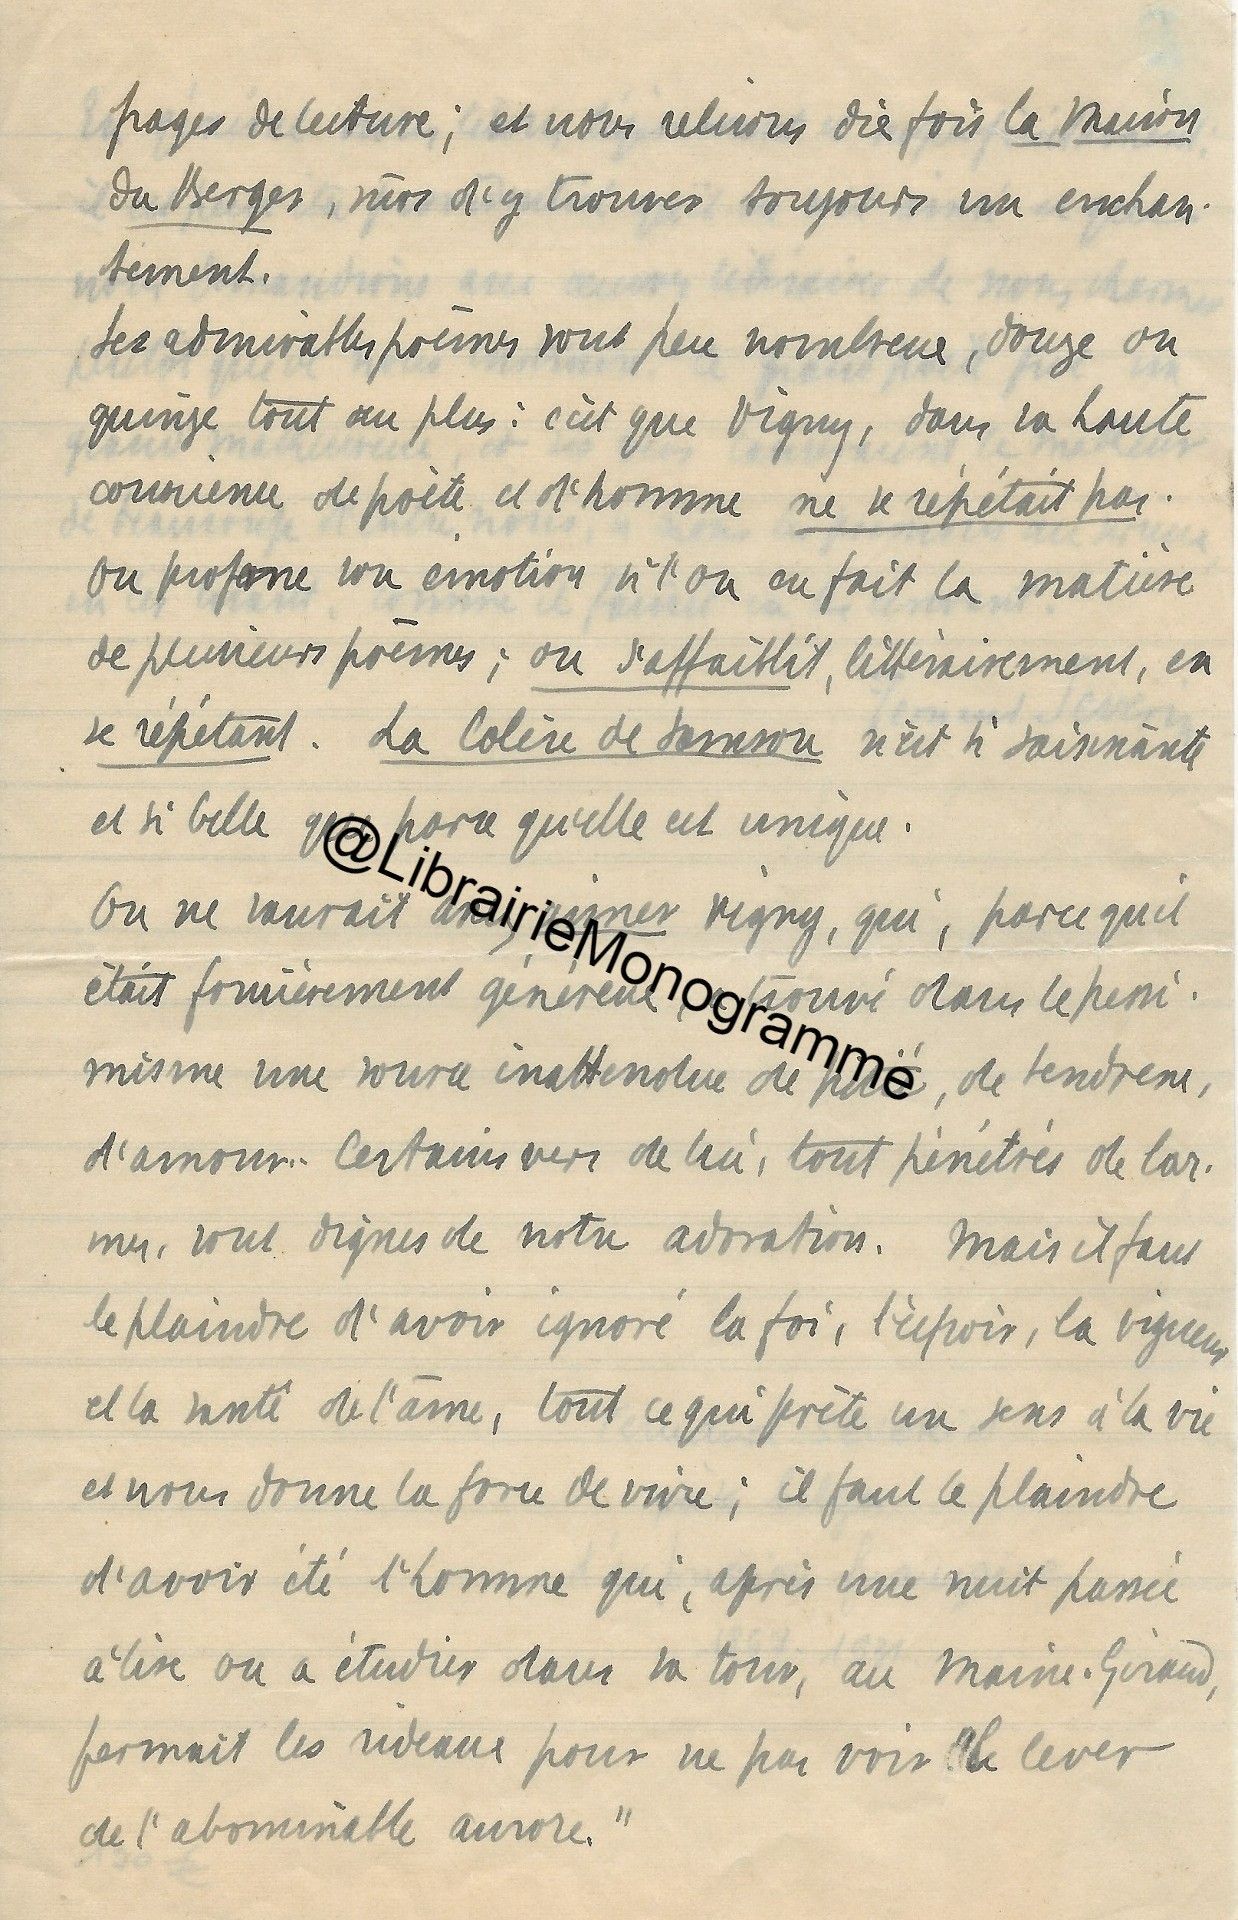 pages de lecture ; et nous relirons dix fois la Maison
du Berger, sûrs d'y trouver toujours un enchan-
tement.
Ses admirables poèmes sont peu nombreux, douze ou
quinze tout au plus : c'est que Vigny, dans sa haute
conscience de poète et d'homme ne se répétait pas.
On profane son émotion si l'on en fait la matière
de plusieurs poèmes ; on s'affaiblit, littérairement, en
se répétant. La Colère de Samson n'est si saisissante
et si belle que parce qu'elle est unique.
On ne saurait assez aimer Vigny, qui, parce qu'il
était foncièrement généreux, a trouvé dans le pessi-
misme une source inattendue de pitié, de tendresse,
d'amour. Certains vers de lui, tout pénétrés de lar-
mes, sont dignes de notre adoration. Mais il faut
le plaindre d'avoir ignoré la foi, l'espoir, la vigueur
et la santé de l'âme, tout ce qui prête un sens à la vie
et nous donne la force de vivre ; il faut le plaindre
d'avoir été l'homme qui, après une nuit passée
à lire ou a étudier dans sa tour, au Maine-Giraud,
fermait les rideaux pour ne pas voir le lever
de l'abominable aurore."
@LibrairieMonogramme